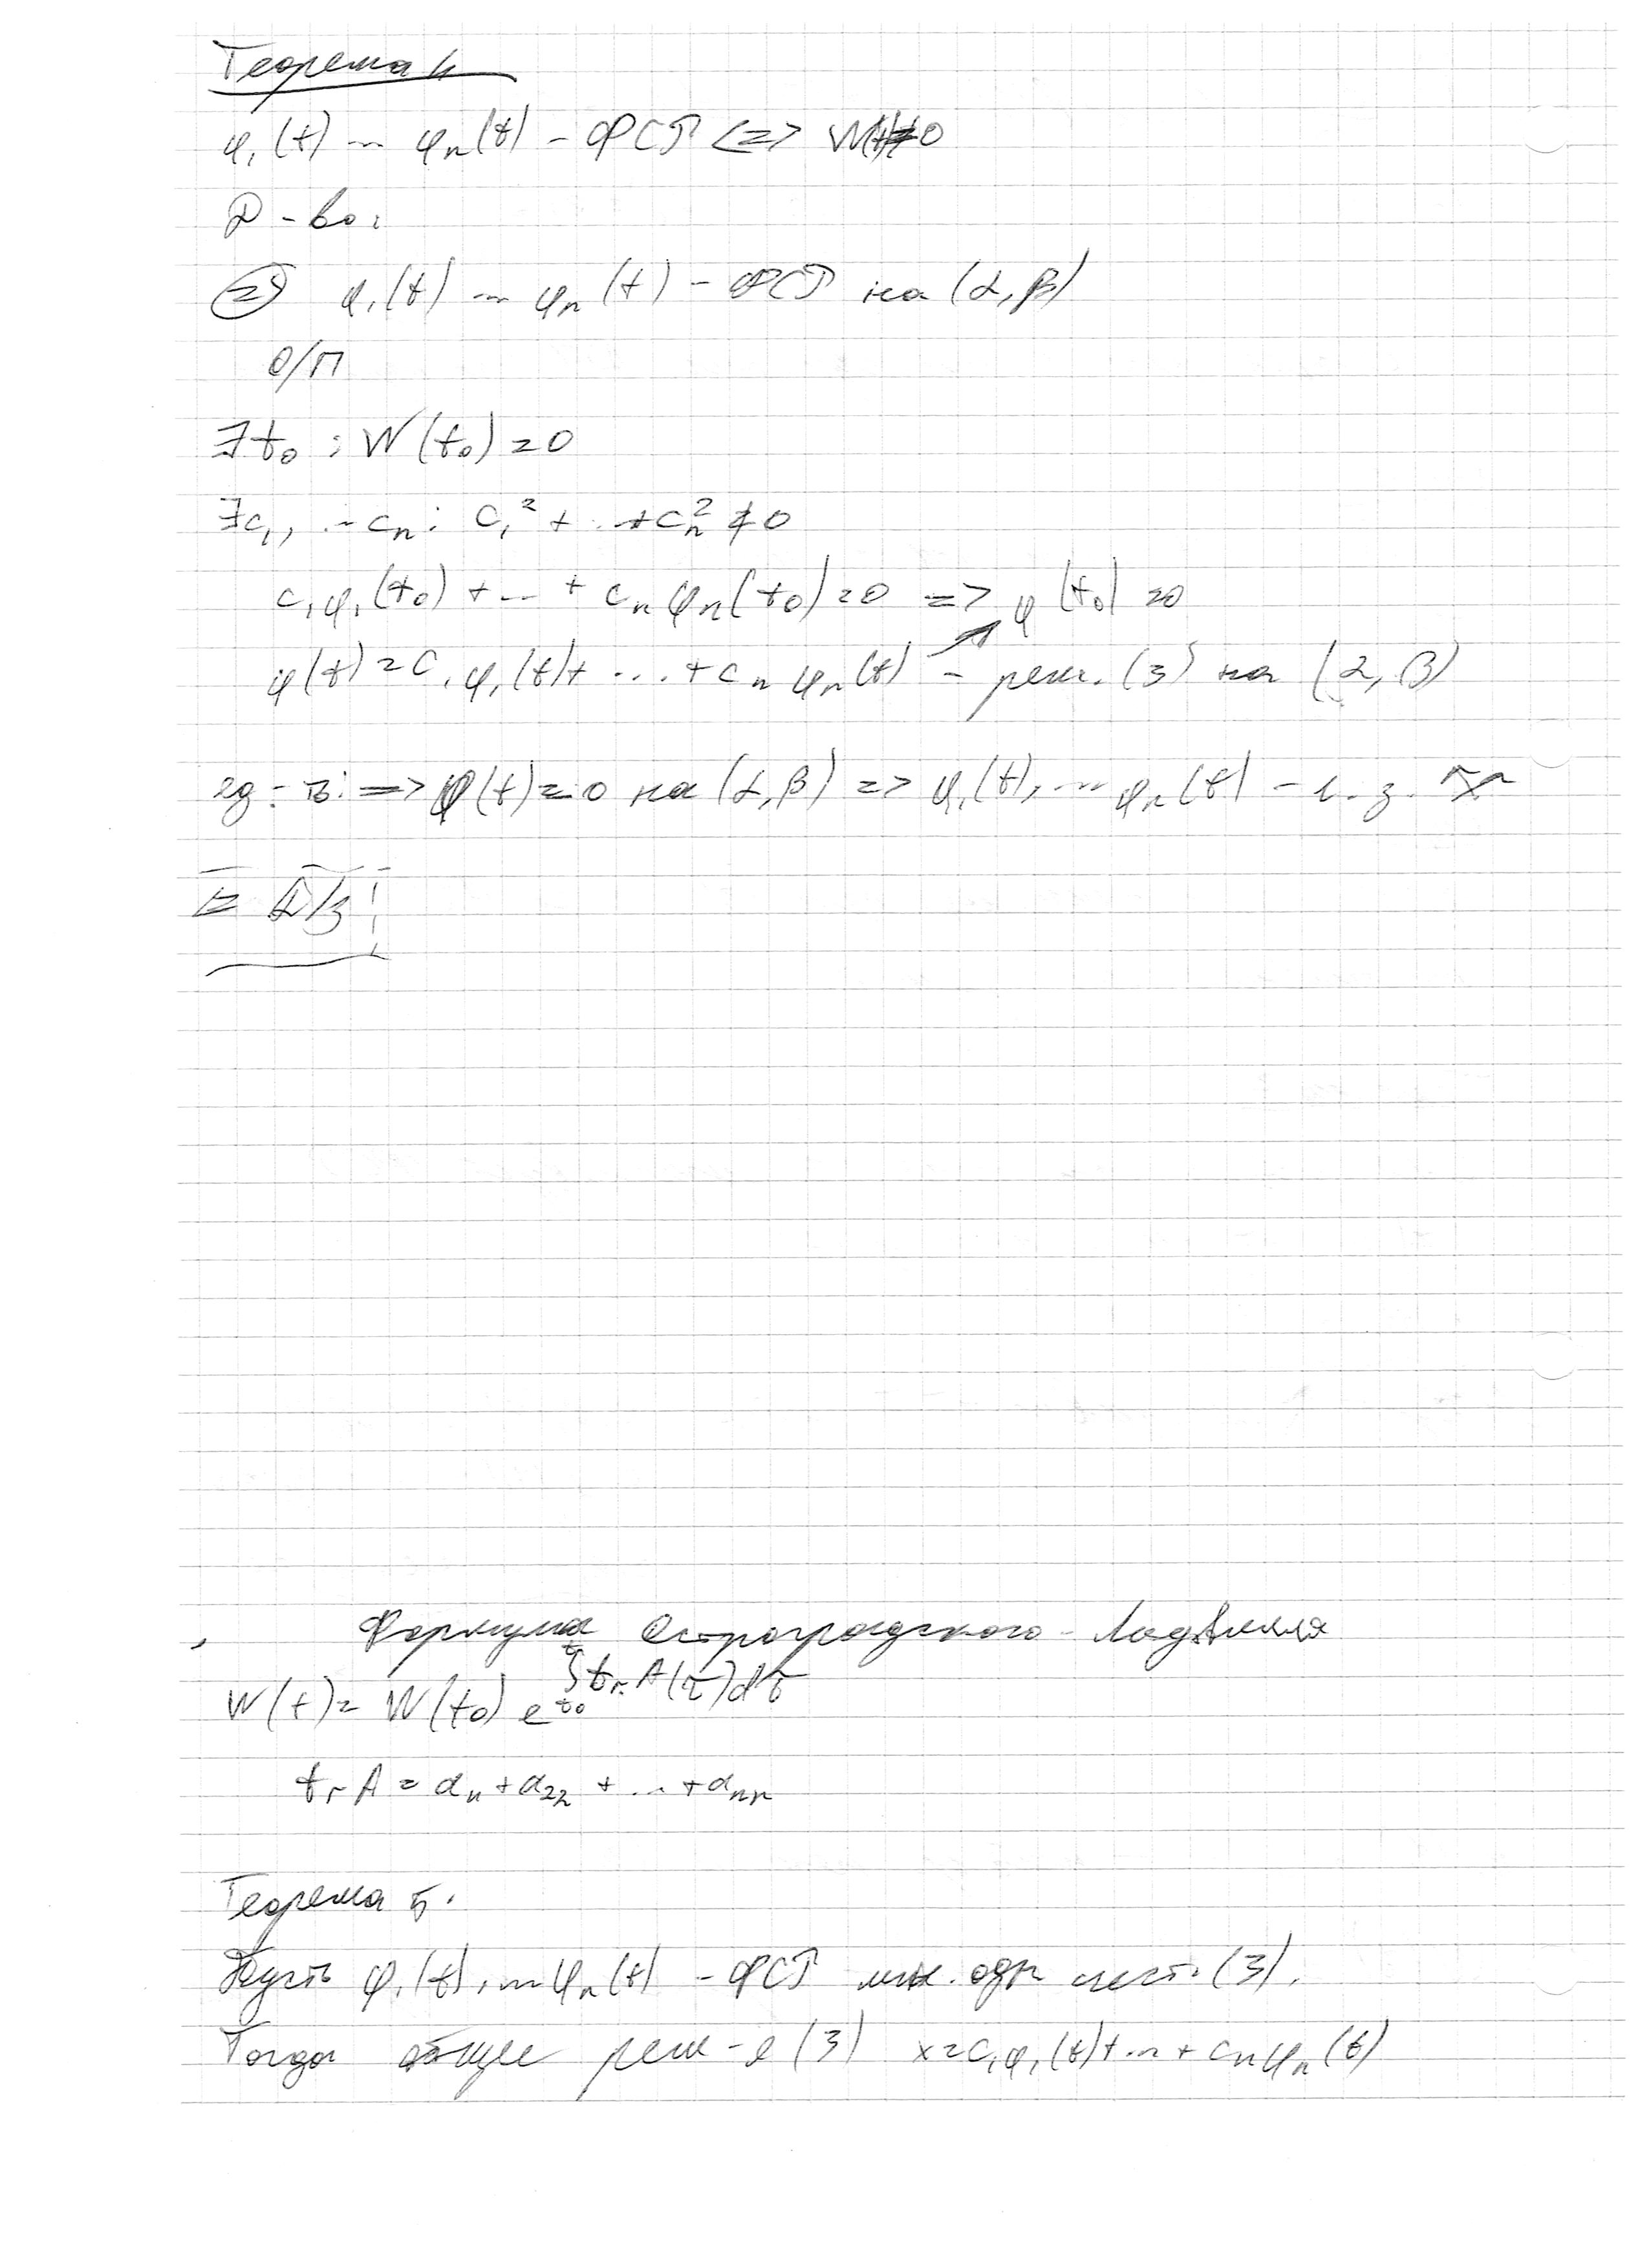 Теорема 4
φ₁(t) ... φₙ(t) - ФСР <=> W(t)≠0
Д-во:
=> φ₁(t) ... φₙ(t) - ФСР на (α, β)
О/П
∃t₀ : W(t₀) = 0
∃c₁, ... cₙ: c₁² + ... + cₙ² ≠ 0
c₁φ₁(t₀) + ... + cₙφₙ(t₀) = 0 => φ(t₀) = 0
φ(t) = c₁φ₁(t) + ... + cₙφₙ(t) - реш. (3) на (α, β)
=> φ(t) ≡ 0 на (α, β) => φ₁(t), ... φₙ(t) - л. з.
<= Д/з!
Формула Остроградского - Лиувилля
W(t) = W(t₀) e^∫ₜ₀ᵗ tr A(τ)dτ
tr A = a₁₁ + a₂₂ + ... + aₙₙ
Теорема 5.
Пусть φ₁(t), ... φₙ(t) - ФСР лин. одн сист. (3).
Тогда общее реш-е (3) x = c₁φ₁(t) + ... + cₙφₙ(t)